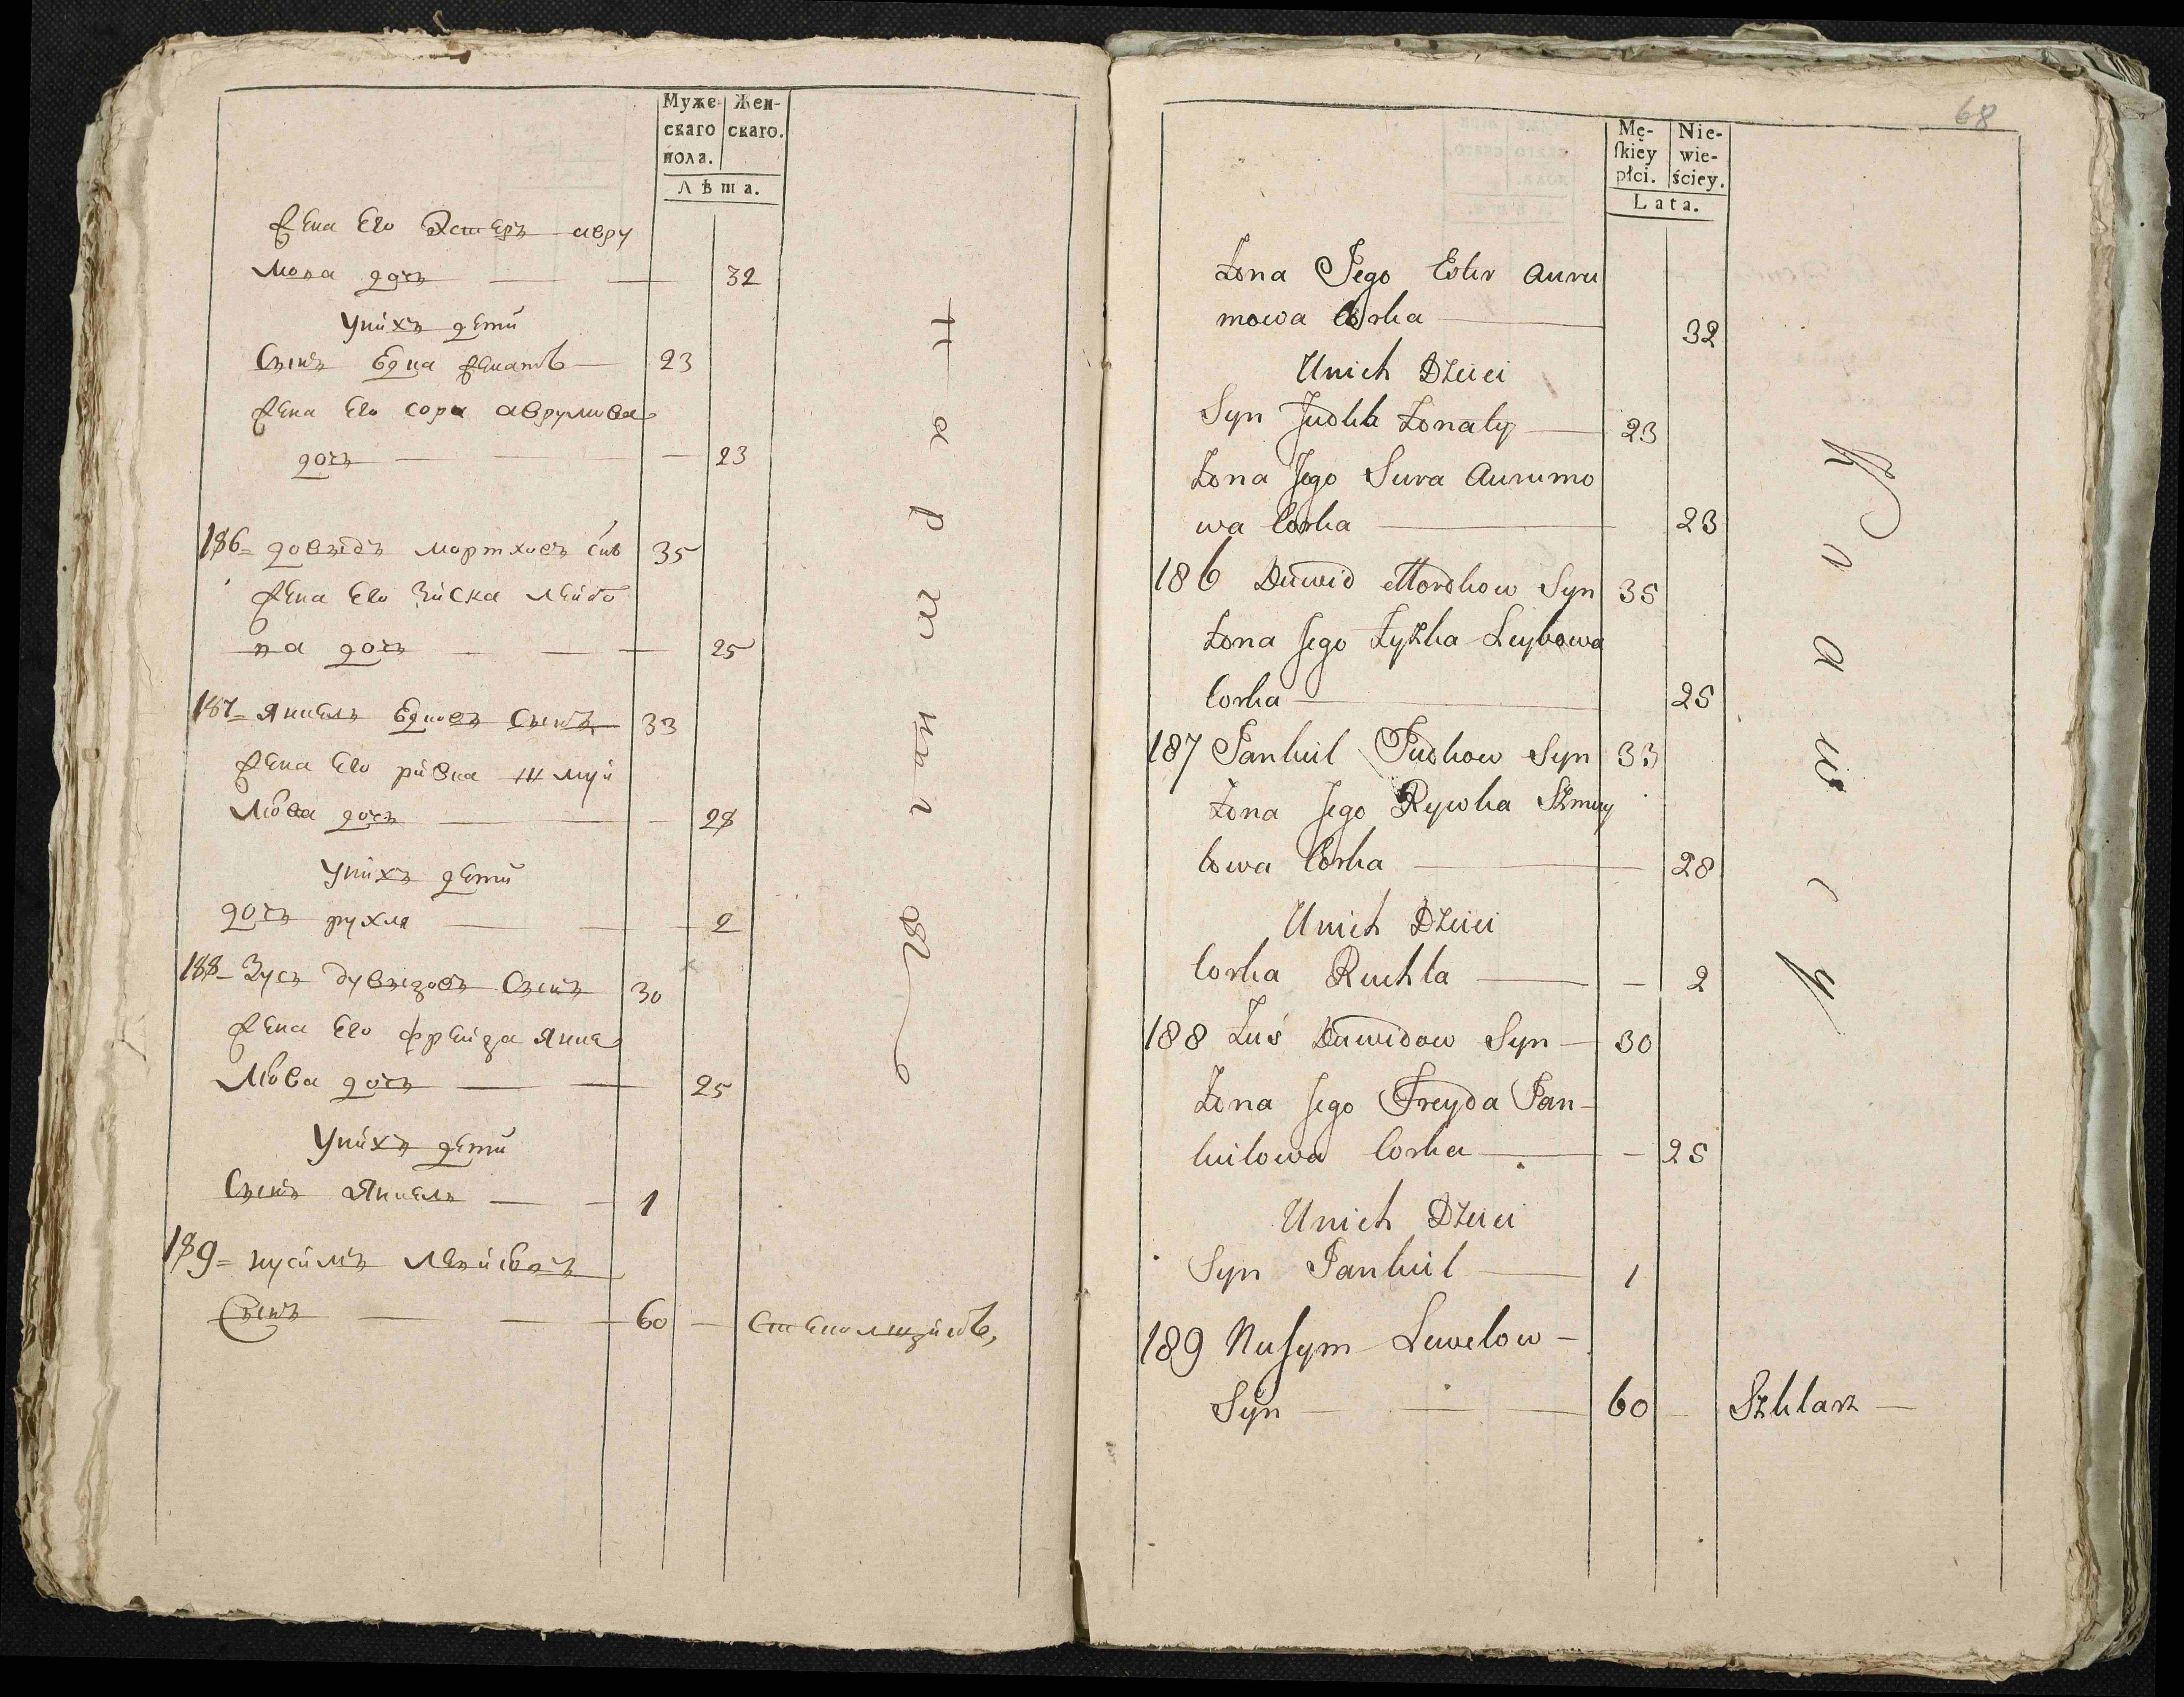 Муже-
скаго
пола.
Жен-
скаго.
Лѣта.
жена Его Эстеръ авру
мова дочь — — 32
Унихъ дети
Сынъ Юдка женатъ — 23
жена Его сора аврумова
дочь — — — 23
186= довыдъ мортховъ сынъ 35
жена Его Зиска Лейбо
ва дочь — — — 25
187= Янкель Юдковъ Сынъ 33
жена Его ривка шмуй
лова дочь — — — 28
Унихъ дети
дочь рухля — — — 2
188= Зусь дувыдовъ Сынъ 30
жена Его фрейда Янке
лова дочь — — 25
Унихъ дети
Сынъ Янкель — — 1
189= нусимъ
Сынъ — — — 60 —
68
Mę-
ſkiey
płci.
Nie-
wie-
ściey.
Lata.
Żona Jego Ester Auru
mowa Corka — 32
Unich Dzieci
Syn Judka Żonaty — 23
Żona Jego Sura Aurumo
wa Corka — 23
186 Dawid Mordkow Syn 35
Żona Jego Zyzka Leybowa
Corka — 25
187 Jankiel Judkow Syn 33
Żona Jego Rywka Szmuy
lowa Corka — 28
Unich Dzieci
Corka Ruchla — — 2
188 Zuś Dawidow Syn — 30
Żona Jego Freyda Jan-
kielowa Corka — — 25
Unich Dzieci
Syn Jankiel — 1
189 Nuſym Lewelow —
Syn — — — 60 — Szklarz —